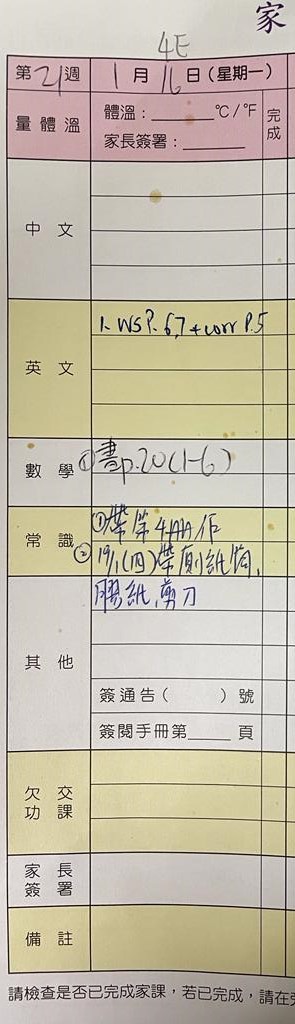 家
4E
第21週 1月16日(星期一)
量體溫 體溫：______ °C/°F 完成
家長簽署：______
中文
英文 1. WS P. 6,7 + corr P.5
數學 ① 書p.20(1-6)
常識 ①帶第4
② 19/1(四)帶廁紙筒,
膠紙,剪刀
其他
簽通告( )號
簽閱手冊第____頁
欠交功課
家長簽署
備註
請檢查是否已完成家課，若已完成，請在